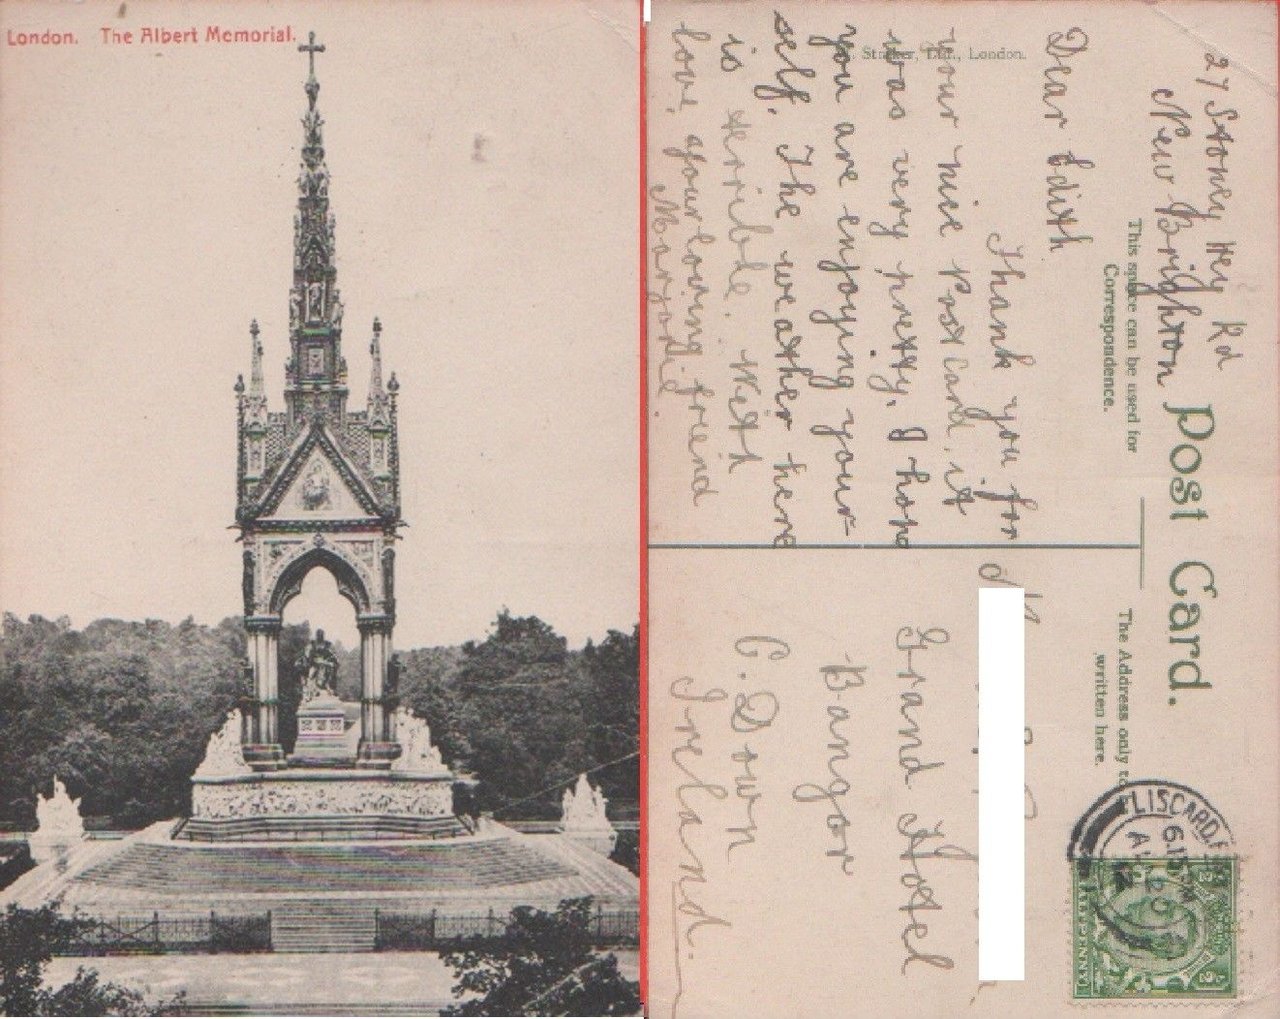 London. The Albert Memorial.
27 Stoney Hey Rd
New Brighton
Post Card.
This space can be used for
Correspondence.
The Address only to
written here.
, London.
Dear Edith
Thank you for
your nice Post Card, it
was very pretty. I hope
you are enjoying your
self. The weather here
is terrible. With
love, your loving friend
Marjorie.
Grand Hotel
Bangor
C. Down
Ireland.
LISCARD
HALFPENNY